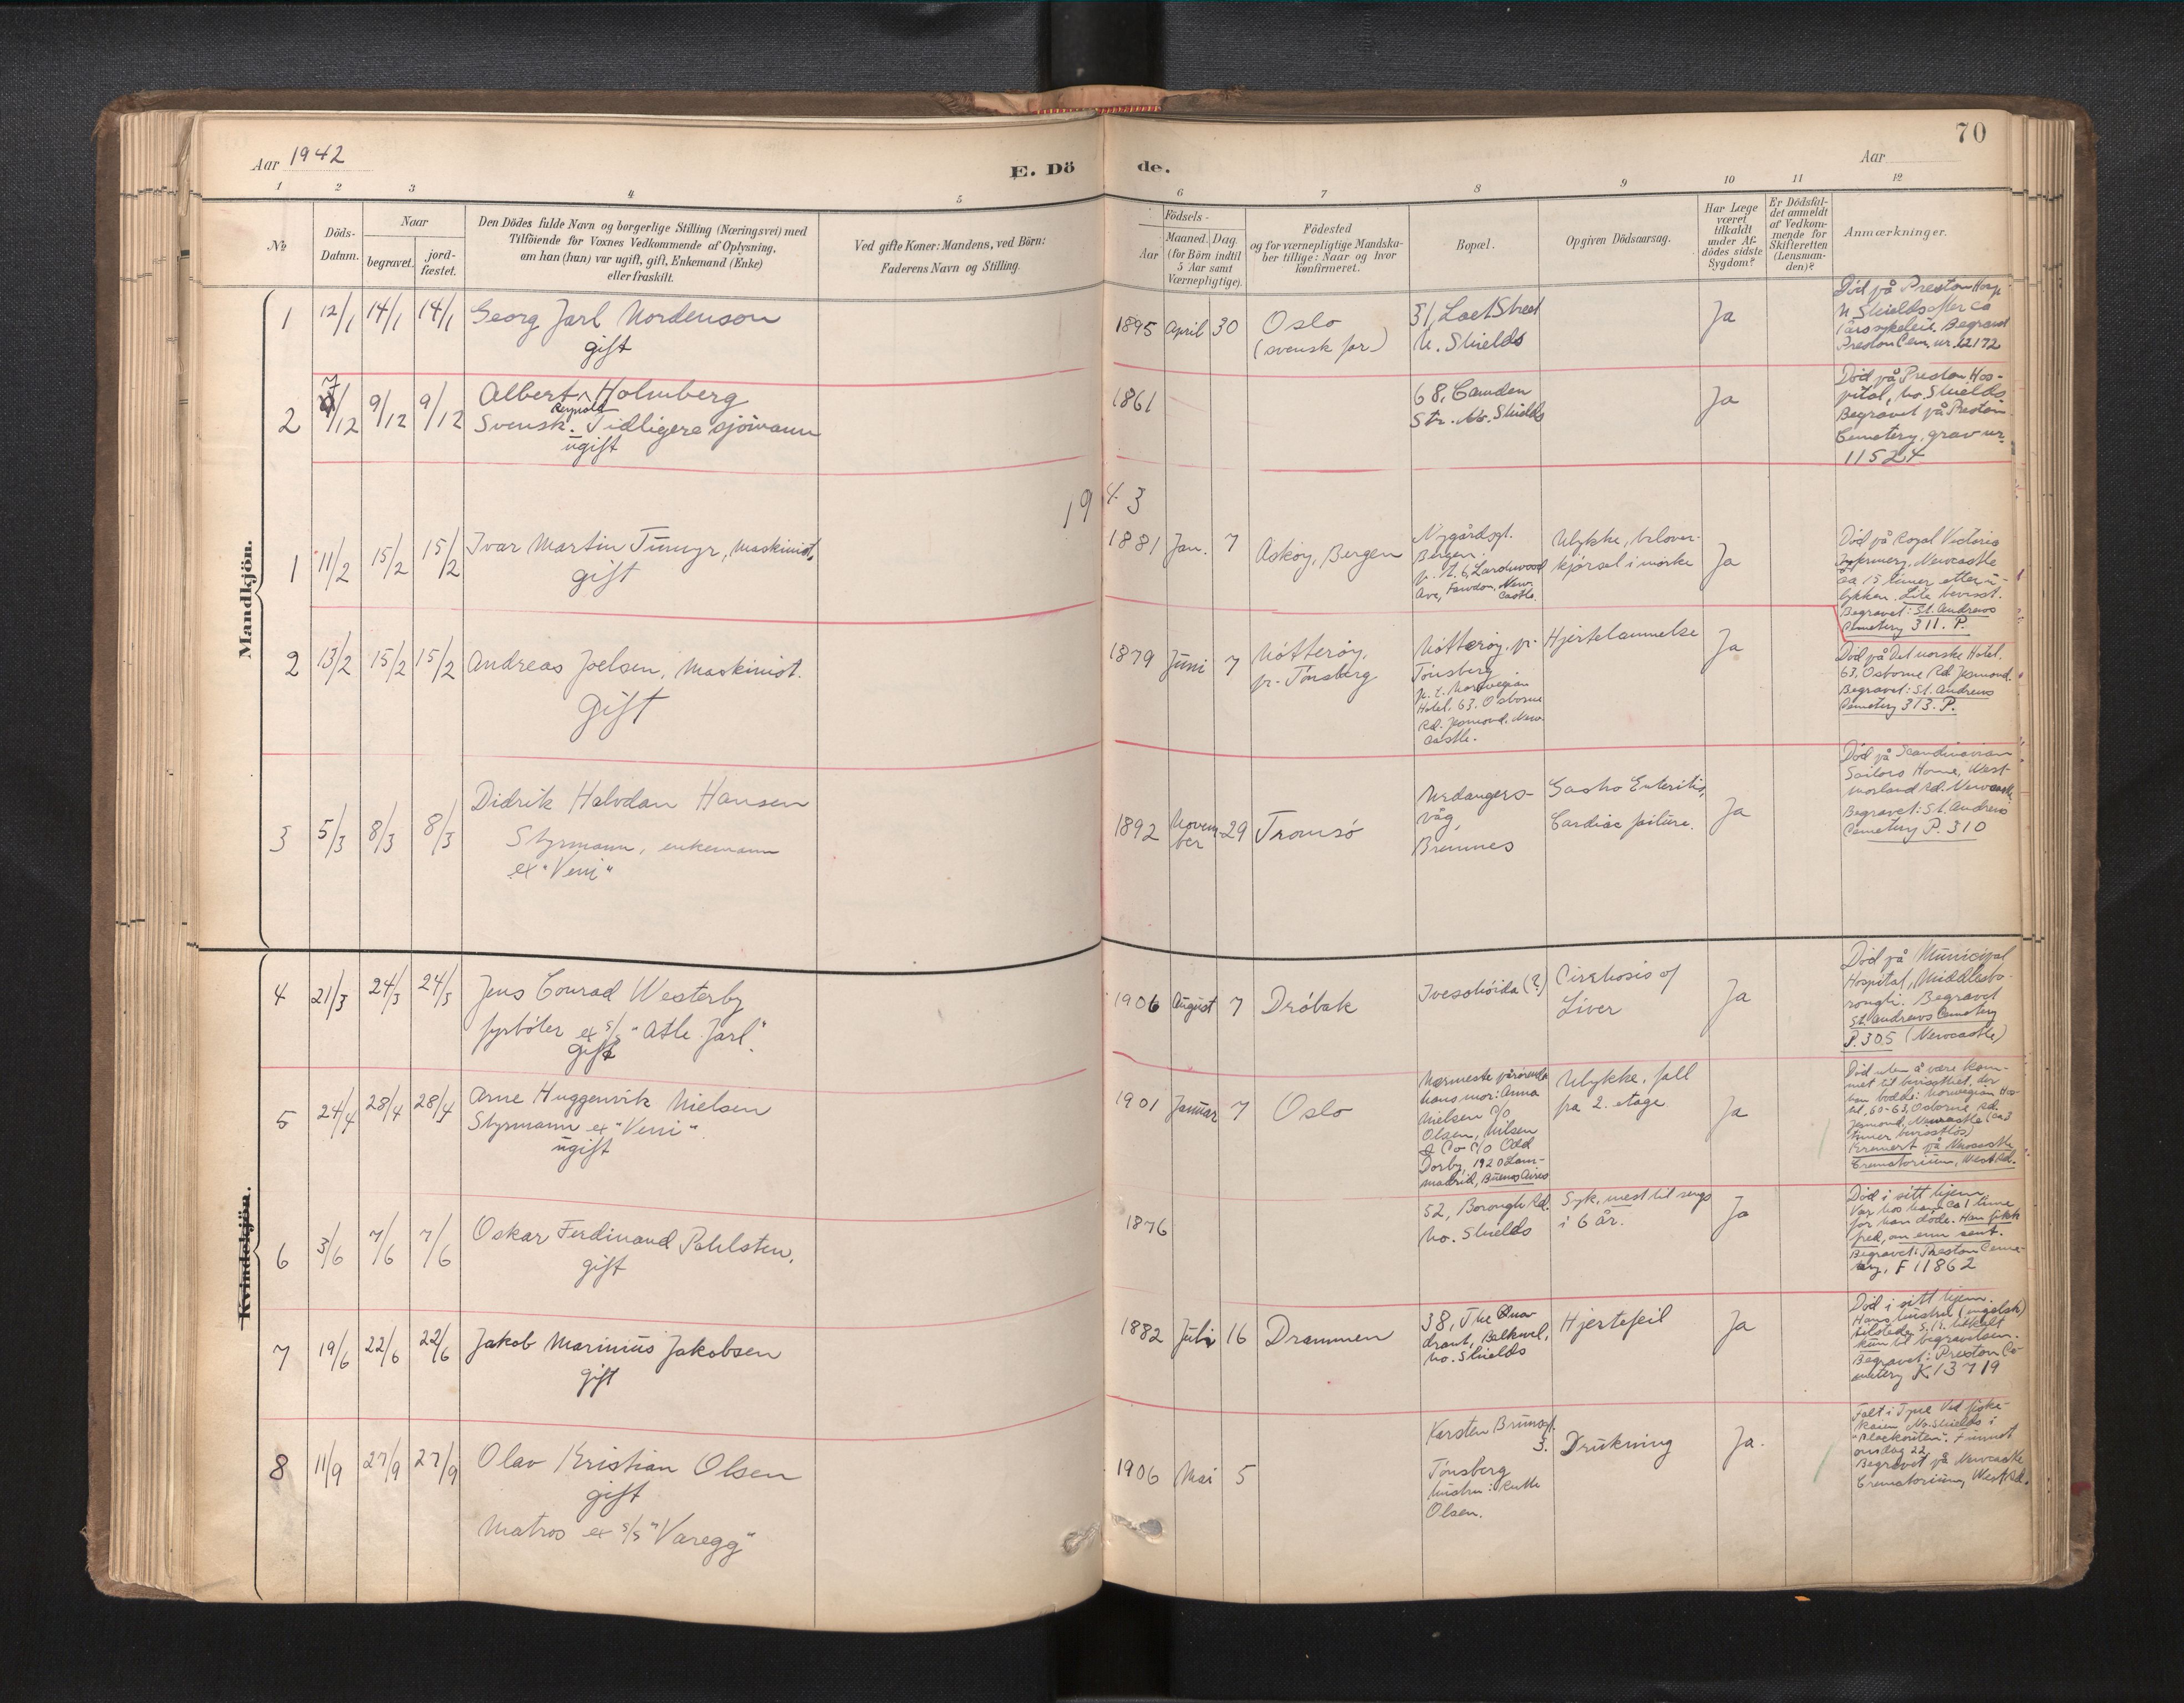 70
Aar 1942
E. Dö
de.
Aar
1 2 3 4 5 6 7 8 9 10 11 12
No
Döds-
Datum.
Naar
begravet.
jord-
fæstet.
Den Dödes fulde Navn og borgerlige Stilling (Næringsvei) med
Tilföiende for Voxnes Vedkommende af Oplysning,
om han (hun) var ugift, gift, Enkemand (Enke)
eller fraskilt.
Ved gifte Koner: Mandens, ved Börn:
Faderens Navn og Stilling.
Födsels-
Aar
Maaned. Dag
(for Börn indtil
5 Aar samt
Værnepligtige).
Födested
og for værnepligtige Mandska-
ber tillige: Naar og hvor
konfirmeret.
Bopæl.
Opgiven Dödsaarsag.
Har Læge
været
tilkaldt
under Af-
dödes sidste
Sygdom?
Er Dödsfal-
det anmeldt
af Vedkom-
mende for
Skifteretten
(Lensman-
den)?
Anmærkninger.
Mandkjön.
1 12/1 14/1 14/1 Georg Jarl Nordenson
gift
1895 April 30 Oslo
(svensk far)
31, Street
N. Shields
Ja
Død på Preston Hosp.
N Shields after ca
1 års sykeleie. Begravet
Preston Cem. nr. 12172
2 7/12 9/12 9/12 Albert Holmberg
Reynold
Svensk. Tidligere sjömann
ugift
1861
68, Camden
Str. No. Shields
Ja
Død på Preston Hos-
pital, No. Shields
Begravet på Preston
Cemetery, grav nr.
11524
1943
1 11/2 15/2 15/2 Ivar Martin Tunyr, Maskinist,
gift
1881 Jan. 7 Askøy, Bergen
Nygårdsgt.
Bergen.
p. t. 6, Larchwood
Ave, Fawdon, New-
castle.
Ulykke, bilover-
kjørsel i mørke
Ja
Død på Royal Victoria
Infermery, Newcastle
ca 15 timer etter u-
lykken. Lite bevisst.
Begravet: St. Andrews
Cemetery 311. P.
2 13/2 15/2 15/2 Andreas Joelsen, Maskinist.
gift
1879 Juni 7 Nøtterøy,
pr. Tønsberg
Nøtterøy, pr.
Tønsberg
p. t. Norwegian
Hotel, 63. Osborne
Rd. Jesmond. New-
castle.
Hjertelammelse
Ja
Død på Det norske Hotel.
63, Osborne Rd Jesmond.
Begravet: St. Andrews
Cemetery 313. P.
3 5/3 8/3 8/3 Didrik Halvdan Hansen
Styrmann, enkemann
ex "Veni"
1892 Novem-
ber 29 Tromsø
Urdangers-
våg,
Bremnes
Gastro Enteritis,
Cardiac failure.
Ja
Død på Scandinavian
Sailors Home, West-
morland Rd. Newcastle
Begravet: St. Andrews
Cemetery P. 310
Kvindekjön.
4 21/3 24/3 24/3 Jens Conrad Westerby
fyrbøter ex s/s "Atle Jarl".
gift
1906 August 7 Drøbak
(?)
Cirrhosis of
Liver
Ja
Død på Municipal
Hospital, Middlesbo-
rough. Begravet
St. Andrews Cemetery
P. 305 (Newcastle)
5 24/4 28/4 28/4 Arne Huggenvik Nielsen
Styrmann ex "Veni".
ugift
1901 Januar 7 Oslo
Nærmeste pårørende
hans mor: Anna
Nielsen c/o
Olsen, Nilsen
& Co c/o Odd
Dorby, 1920 Lam-
madrid, Buenos Aires
Ulykke, fall
fra 2. etage
Ja
Død uten å være kom-
met til bevissthet, der
han bodde: Norwegian Ho-
tel, 60-63, Osborne Rd.
Jesmond, Newcastle (ca 3
timer bevisstløs)
Kremert på Newcastle
Crematorium, West Rd.
6 3/6 7/6 7/6 Oskar Ferdinand Pahlsten,
gift
1876
52, Borough Rd.
No. Shields
Syk, mest til sengs
i 6 år.
Ja
Død i sitt hjem
Var hos ham ca 1 time
før han døde. Han fikk
fred, om enn sent.
Begravet: Preston Ceme-
tery, F 11862
7 19/6 22/6 22/6 Jakob Marinius Jakobsen
gift
1882 Juli 16 Drammen
38, The Quad-
drant, Balkwel,
No. Shields
Hjertefeil
Ja
Død i sitt hjem.
Hans hustru (engelsk)
kun til begravelsen.
Begravet: Preston Ce-
metery K. 13719
8 11/9 27/9 27/9 Olav Kristian Olsen
gift
Matros ex s/s "Varegg"
1906 Mai 5
Karsten Brunsgt.
3.
Tønsberg
hustru: Ruth
Olsen.
Drukning
Ja.
Falt i Tyne ved fiske-
kaien No. Shields i
"Blackouten". Funnet
onsdag 22,
Begravet på Newcastle
Crematorium, West Rd.